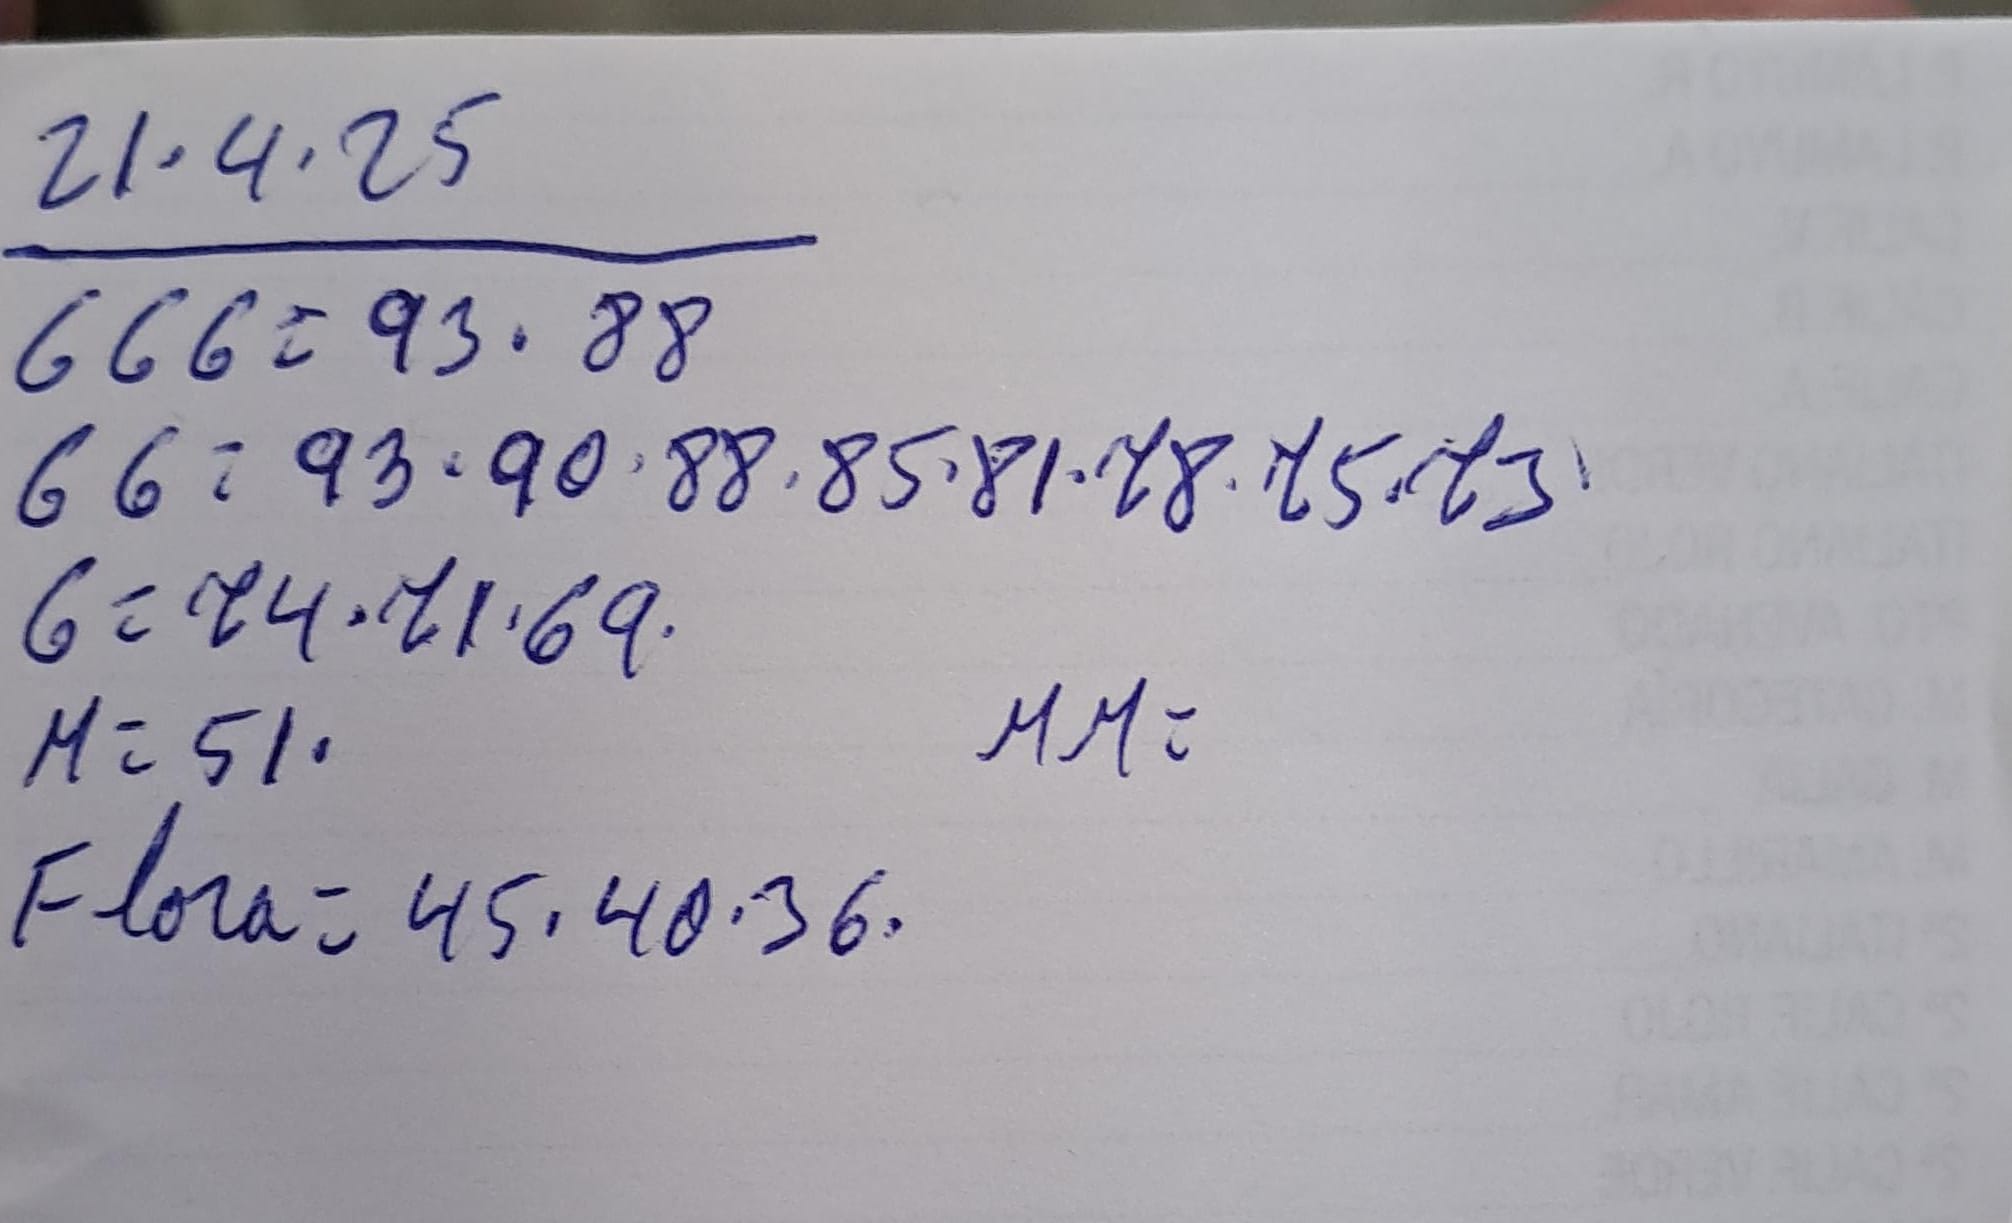 21.4.25
GGG = 93. 88
GG = 93.90.88.85.81.78.75.73.
G = 74.71.69.
M = 51. MM =
Flora = 45.40.36.